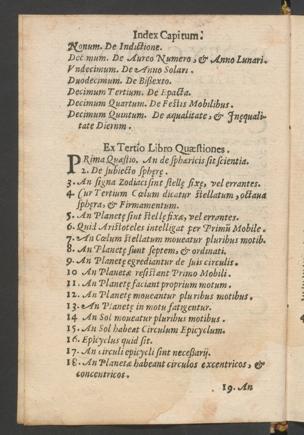 Index Capitum.
Nonum. De Indictione.
Decimum. De Aureo Numero, & Anno Lunari.
Vndecimum. De Anno Solari.
Duodecimum. De Bissexto.
Decimum Tertium. De Epacta.
Decimum Quartum. De Festis Mobilibus.
Decimum Quintum. De æqualitate, & Inæquali-
tate Dierum.
Ex Tertio Libro Quæstiones.
PRima Quæstio. An de sphæricis sit scientia.
2. De subiecto sphęrę.
3. An signa Zodiaci sint stellę fixę, vel errantes.
4 Cur Tertium Cœlum dicatur stellatum, octaua
sphęra, & Firmamentum.
5. An Planetę sint stellę fixę, vel errantes.
6. Quid Aristoteles intelligat per Primũ Mobile.
7. An Cœlum stellatum moueatur pluribus motib.
8. An Planetę sunt septem, & ordinati.
9. An Planetę egrediantur de suis circulis.
10 An Planetæ resistant Primo Mobili.
11. An Planetę faciant proprium motum.
12. An Planetę moueantur pluribus motibus.
13. An Planetę in motu fatigentur.
14 An Sol moueatur pluribus motibus.
15 An Sol habeat Circulum Epicyclum.
16. Epicyclus quid sit.
17. An circuli epicycli sint necessarij.
18. An Planetæ habeant circulos excentricos, &
concentricos.
19. An